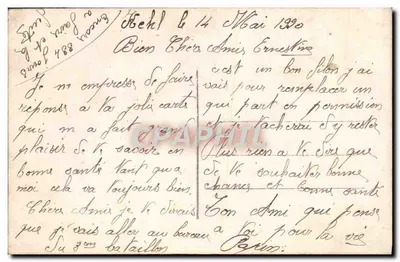 Encore
884 jours
a faire et la
Kehl le 14 Mai 1920
Bien Chère Amie Ernestine
Je m empresse de faire
réponse a ta jolie carte
qui m a fait grand
plaisir de te savoir en
bonne santé tant qua
moi cela va toujours bien.
Chère Amie je te dirais
que je vais aller au bureau
du 3eme bataillon
c est un bon filon j ai
vais pour remplacer un
qui part en permission
et je tacherai d y rester
Plus rien a te dire que
de te souhaiter bonne
chance et bonne santé
Ton Ami qui pense
a toi pour la vie
CPARAMA